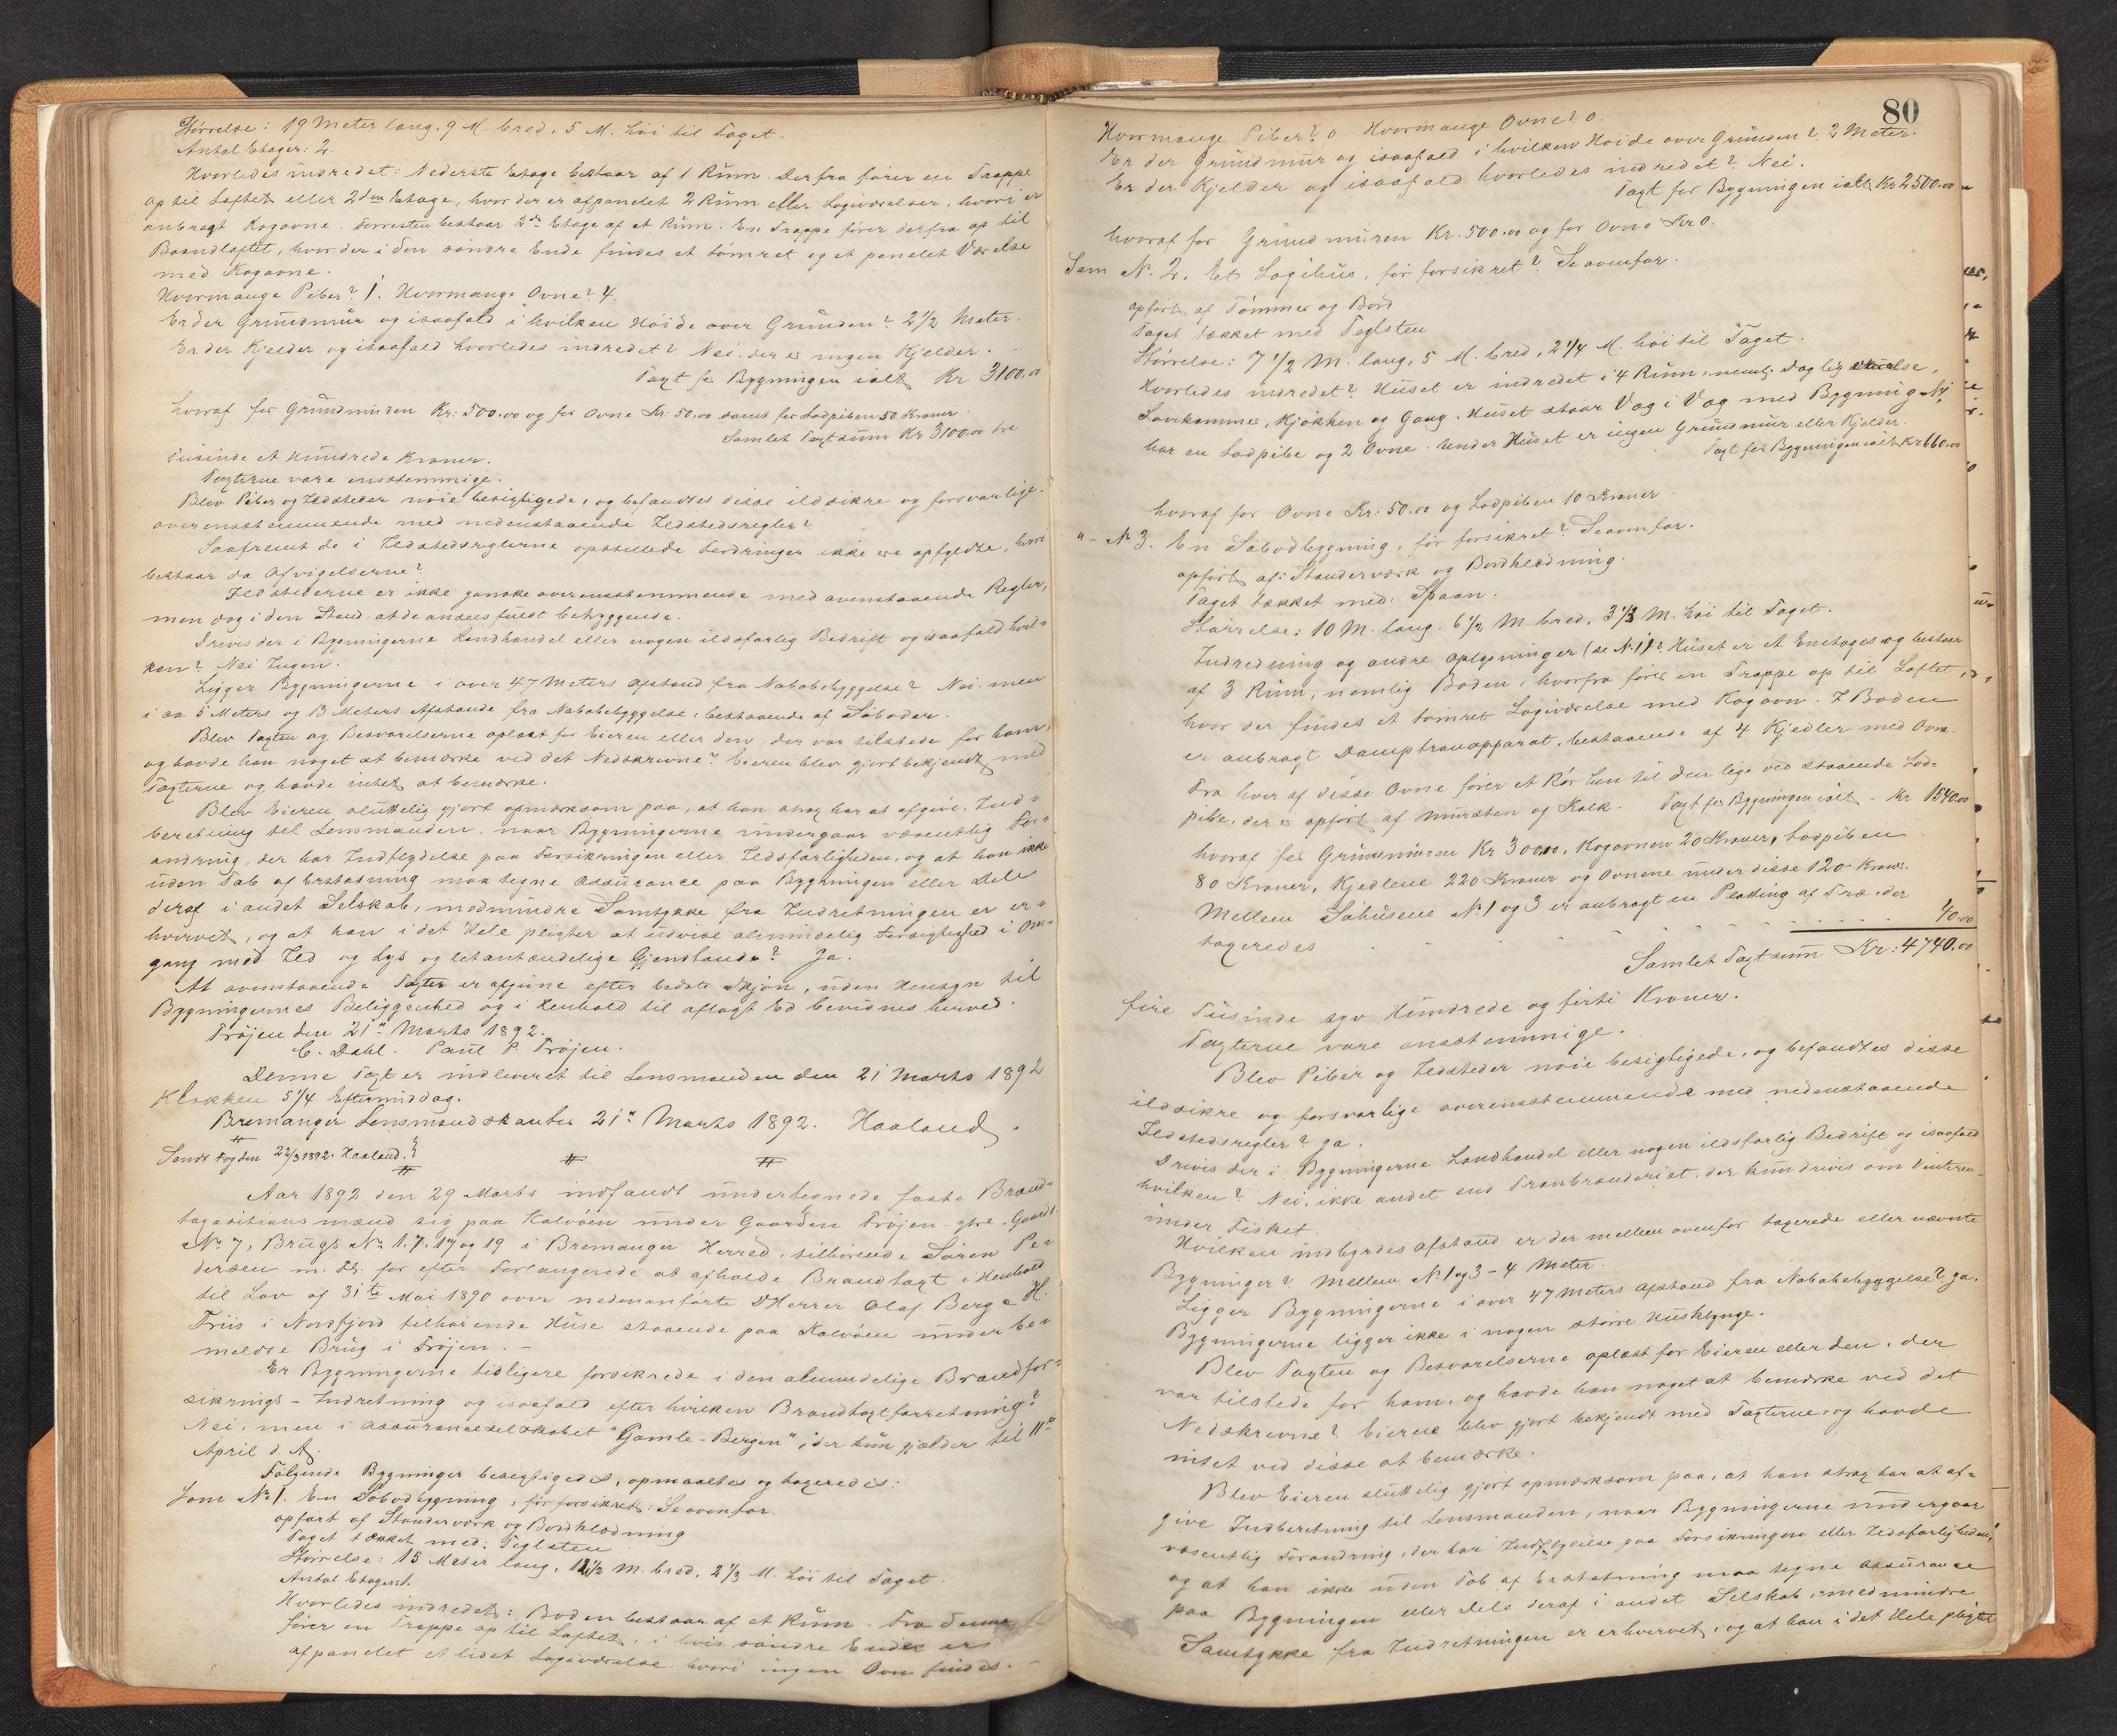 Størrelse: 19 Meter lang, 9 M. bred, 5 M. høi til Taget.
Antal Etager: 2.
Hvorledes indredet: Nederste Etage bestaar af 1 Rum. Derfra fører en Trappe
op til Loftet eller 2den Etage, hvor der er afpanelet 2 Rum eller Logiværelser, hvori er
anbragt Kogovne. Forresten bestaar 2den Etage af et Rum. En Trappe fører derfra op til
Baandloftet, hvor der i den søndre Ende findes et tømret og et panelet Værelse
med Kogovne.
Hvormange Piber? 1. Hvormange Ovne? 4.
Er der Grundmur og isaafald i hvilken Høide over Grunden? 2 1/2 Meter.
Er der Kjelder og isaafald hvorledes indredet? Nei. der er ingen Kjelder.
Taxt for Bygningen ialt Kr 3100.00
hvoraf for Grundmuren Kr: 500.00 og for Ovne Kr: 50.00 samt for Lodpiben 50 Kroner.
Samlet Taxtsum Kr 3100.00 tre
Tusinde et Hundrede Kroner.
Taxterne vare enstemmige.
Blev Piber og Ildsteder nøie besigtigede, og befandtes disse ildsikre og forsvarlige
overensstemmende med nedenstaaende Ildstedsregler?
Saafremt de i Ildstedsreglerne opstillede Fordringer ikke ere opfyldte, hvori
bestaar da Afvigelserne?
Ildstederne er ikke ganske overensstemmende med ovenstaaende Regler,
men dog i den Stand at de ansees fuldt betryggende.
Drives der i Bygningerne Landhandel eller nogen ildsfarlig Bedrift og isaafald hvil-
ken? Nei Ingen.
Ligger Bygningerne i over 47 Meters Afstand fra Nabobebyggelse? Nei. men
i ca 5 Meters og 13 Meters Afstande fra Nabobebyggelse, bestaaende af Søboder.
Blev Taxten og Besvarelserne oplæst for Eieren eller den, der var tilstede for ham,
og havde han noget at bemærke ved det Nedskrevne? Eieren blev gjort bekjendt med
Taxterne og havde intet at bemærke.
Blev Eieren sluttelig gjort opmærksom paa, at han strax har at afgive Ind-
beretning til Lensmanden, naar Bygningerne undergaar væsentlig For-
andring, der har Indflydelse paa Forsikringen eller Ildsfarligheden, og at han ikke
uden Tab af Erstatning maa tegne Assurance paa Bygningen eller Dele
deraf i andet Selskab, medmindre Samtykke fra Indretningen er er-
hvervet, og at han i det Hele pligter at udvise almindelig Forsigtighed i Om-
gang med Ild og Lys og letantændelige Gjenstande? Ja.
At ovenstaaende Taxter er afgivne efter bedste Skjøn, uden Hensyn til
Bygningernes Beliggenhed og i Henhold til aflagt Ed bevidnes herved.
Frøjen den 21de Marts 1892.
C. Dahl. Paul P. Frøjen.
Denne Taxt er indleveret til Lensmanden den 21 Marts 1892
Klokken 5 1/4 Eftermiddag.
Bremanger Lensmandskontor 21de Marts 1892. Haaland.
Sendt Fogden 22/3 1892. Haaland.
Aar 1892 den 29 Marts indfandt undertegnede faste Brand-
taxationsmænd sig paa Kalvøen under Gaarden Frøjen ytre, Gaards
No 7, Brugs No 1.7.17 og 19 i Bremanger Herred, tilhørende Søren Pe-
dersen m. Fl. for efter Forlangende at afholde Brandtaxt i Henhold
til Lov af 31te Mai 1890 over nedenanførte DHerrer Olaf Berg & H.
Friis i Nordfjord tilhørende Huse staaende paa Kalvøen under be-
meldte Brug i Frøjen.
Er Bygningerne tidligere forsikrede i den almindelige Brandfor-
sikrings-Indretning og isaafald efter hvilken Brandtaxtforretning?
Nei, men i Assuranceselskabet "Gamle-Bergen", der kun gjælder til 11te
April d. A.
Følgende Bygninger besigtigedes, opmaaltes og taxeredes:
Som No 1. En Søbodbygning, før forsikret: Se ovenfor.
opført af Standerværk og Bordklædning
Taget tækket med: Teglsten
Størrelse: 15 Meter lang, 1/3 M. bred, 2 1/3 M. høi til Taget.
Antal Etager 1.
Hvorledes indredet: Boden bestaar af et Rum. Fra denne
fører en Trappe op til Loftet, i hvis søndre Ende er
afpanelet et lidet Logiværelse hvori ingen Ovn findes.
80
Hvormange Piber? 0. Hvormange Ovne? 0.
Er der Grundmur og isaafald i hvilken Høide over Grunden? 2 Meter.
Er der Kjelder og isaafald hvorledes indredet? Nei.
Taxt for Bygningen ialt Kr 2500.00
hvoraf for Grundmuren Kr. 500.00 og for Ovne Kr 0.
Som No 2. Et Logihus, før forsikret? Se ovenfor.
opført af Tømmer og Bord
Taget tækket med Teglsten
Størrelse: 7 1/2 M. lang, 5 M. bred, 2 1/4 M. høi til Taget.
Hvorledes indredet? Huset er indredet i 4 Rum, nemlig Dagligstue,
Sovekammer, Kjøkken og Gang. Huset staar Væg i Væg med Bygning No 1,
har en Lodpibe og 2 Ovne. Under Huset er ingen Grundmur eller Kjelder.
Taxt for Bygningen ialt Kr 660.00
hvoraf for Ovne Kr: 50.00 og Lodpiben 10 Kroner.
"- No 3. En Søbodbygning, før forsikret? Se ovenfor.
opført af: Standerværk og Bordklædning.
Taget tækket med: Spaan.
Størrelse: 10 M. lang, 6 1/2 M. bred, 3 1/3 M. høi til Taget.
Indredning og andre Oplysninger (se No 1)? Huset er et Enetages og bestaar
af 3 Rum, nemlig Boden, hvorfra fører en Trappe op til Loftet,
hvor der findes et tømret Logiværelse med Kogovn. I Boden
er anbragt Damptranapparat, bestaaende af 4 Kjedler med Ovne.
Fra hver af disse Ovne fører et Rør hen til den lige ved staaende Lod-
pibe, der er opført af Mursten og Kalk. Taxt for Bygningen ialt - Kr 1540.00
hvoraf for Grundmuren Kr 300.00, Kogovnen 20 Kroner, Lodpiben
80 Kroner, Kjedlene 220 Kroner og Ovnene under disse 120 Kroner.
Mellem Søhusene No 1 og 3 er anbragt en Platting af Træ, der
taxeredes 40.00
Samlet Taxtsum Kr: 4740.00
fire Tusinde syv Hundrede og firti Kroner.
Taxterne vare enstemmige.
Blev Piber og Ildsteder nøie besigtigede, og befandtes disse
ildsikre og forsvarlige overensstemmende med nedenstaaende
Ildstedsregler? Ja.
Drives der i Bygningerne Landhandel eller nogen ildsfarlig Bedrift og isaafald
hvilken? Nei, ikke andet end Tranbrænderiet, der kun drives om Vinteren
under Fisket.
Hvilken indbyrdes Afstand er der mellem ovenfor taxerede eller nævnte
Bygninger? Mellem No 1 og 3 - 4 Meter.
Ligger Bygningerne i over 47 Meters Afstand fra Nabobebyggelse? Ja.
Bygningerne ligger ikke i nogen større Husklynge.
Blev Taxten og Besvarelserne oplæst for Eieren eller den, der
var tilstede for ham, og havde han noget at bemærke ved det
Nedskrevne? Eierne blev gjort bekjendt med Taxterne, og havde
intet ved disse at bemærke.
Blev Eieren sluttelig gjort opmærksom paa, at han strax har at af-
give Indberetning til Lensmanden, naar Bygningerne undergaar
væsentlig Forandring, der har Indflydelse paa Forsikringen eller Ildsfarligheden,
og at han ikke uden Tab af Erstatning maa tegne Assurance
paa Bygningen eller Dele deraf i andet Selskab, medmindre
Samtykke fra Indretningen er erhvervet, og at han i det Hele pligter